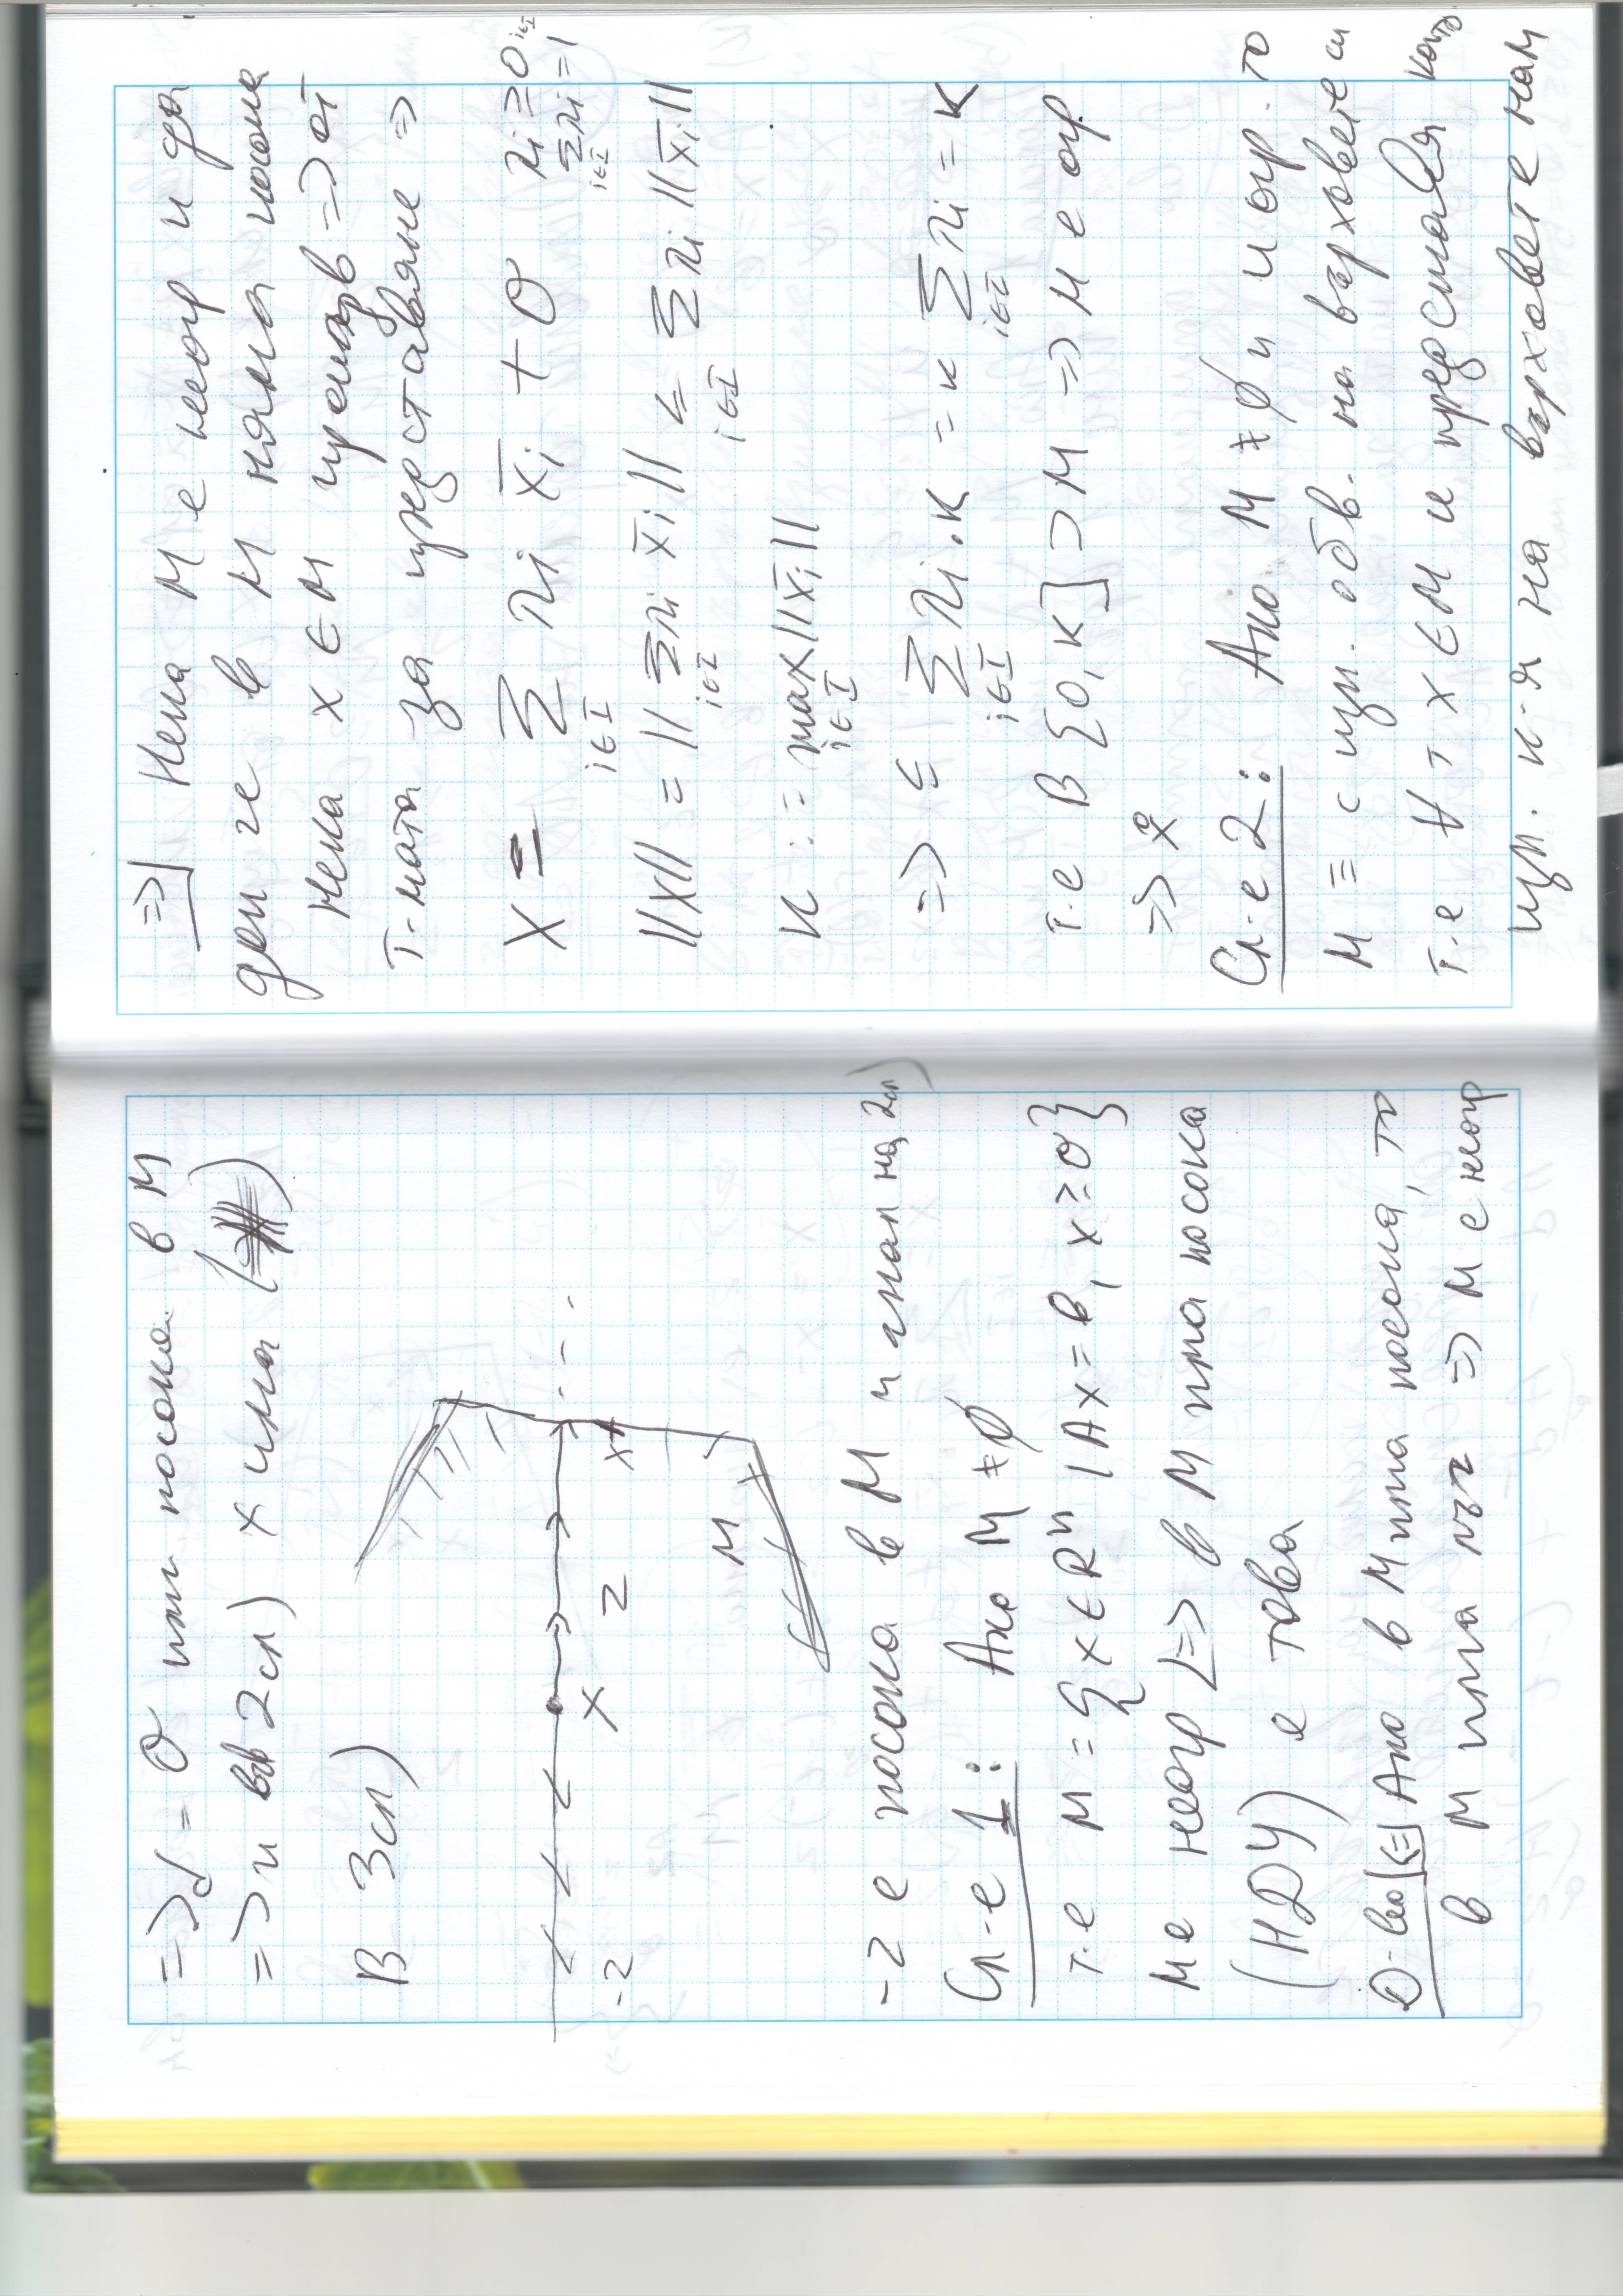 => d = 0 или посока в M
=> и във 2сл) x има (
В 3сл)
-z
x
z
x*
M
-z е посока в M и глап на 2сл)
Сл-е 1: Ако M ≠ ∅
т.е M = {x ∈ R^n | Ax = b, x ≥ 0}
M е неогр <=> в M има посока
(НДУ) е това
Д-во <=| Ако в M има посока, то
в M има лъч => M е неогр
=>| Нека M е неогр и да
доп че в M няма посока
Нека x ∈ M произв => от
т-мата за представяне =>
x = ∑ i∈I λi x̄i + 0 λi ≥ 0 i∈I ∑ i∈I λi = 1
||x|| = || ∑ i∈I λi x̄i || ≤ ∑ i∈I λi ||x̄i||
K := max i∈I ||x̄i||
=> ≤ ∑ i∈I λi.K = K ∑ i∈I λi = K
т.е B[0, K] ⊃ M => M е огр
=> x
Сл-е 2: Ако M ≠ ∅ и огр. то
M ≡ с изп. обв. на върховете си
т.е ∀ т x ∈ M се представя като
изп. к-я на върховете на M